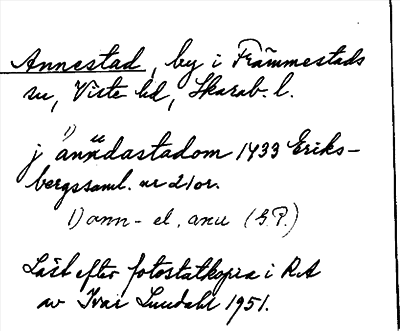 Annestad, by i Främmestads
sn, Viste hd, Skarab. l.
1)
j anndastadom 1433 Eriks-
bergssaml. nr 21 or.
1) ann- el. anu (G.P.)
Läst efter fotostatkopia i RA
av Ivar Lundahl 1951.